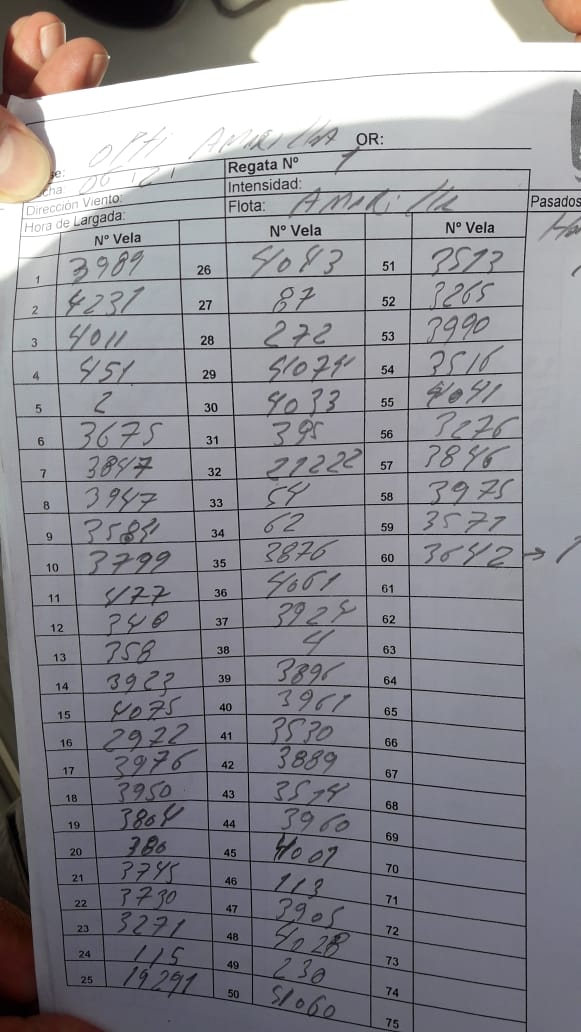 OPti AMARILLA OR:
se:
cha: 06 12 1 Regata Nº 1
Dirección Viento: Intensidad:
Hora de Largada: Flota: AMARilla Pasados
Nº Vela Nº Vela Nº Vela
1 3989 26 4043 51 3513
2 4231 27 87 52 3265
3 4011 28 272 53 3990
4 451 29 51074 54 3516
5 2 30 4033 55 4041
6 3675 31 395 56 3276
7 3847 32 21222 57 3846
8 3947 33 54 58 3975
9 3584 34 62 59 3571
10 3799 35 3876 60 3642 →
11 477 36 4061 61
12 340 37 3924 62
13 358 38 4 63
14 3923 39 3896 64
15 4075 40 3961 65
16 2922 41 3530 66
17 3976 42 3889 67
18 3950 43 3514 68
19 3804 44 3960 69
20 386 45 4007 70
21 3745 46 113 71
22 3730 47 3905 72
23 3271 48 4028 73
24 115 49 230 74
25 19291 50 51060 75